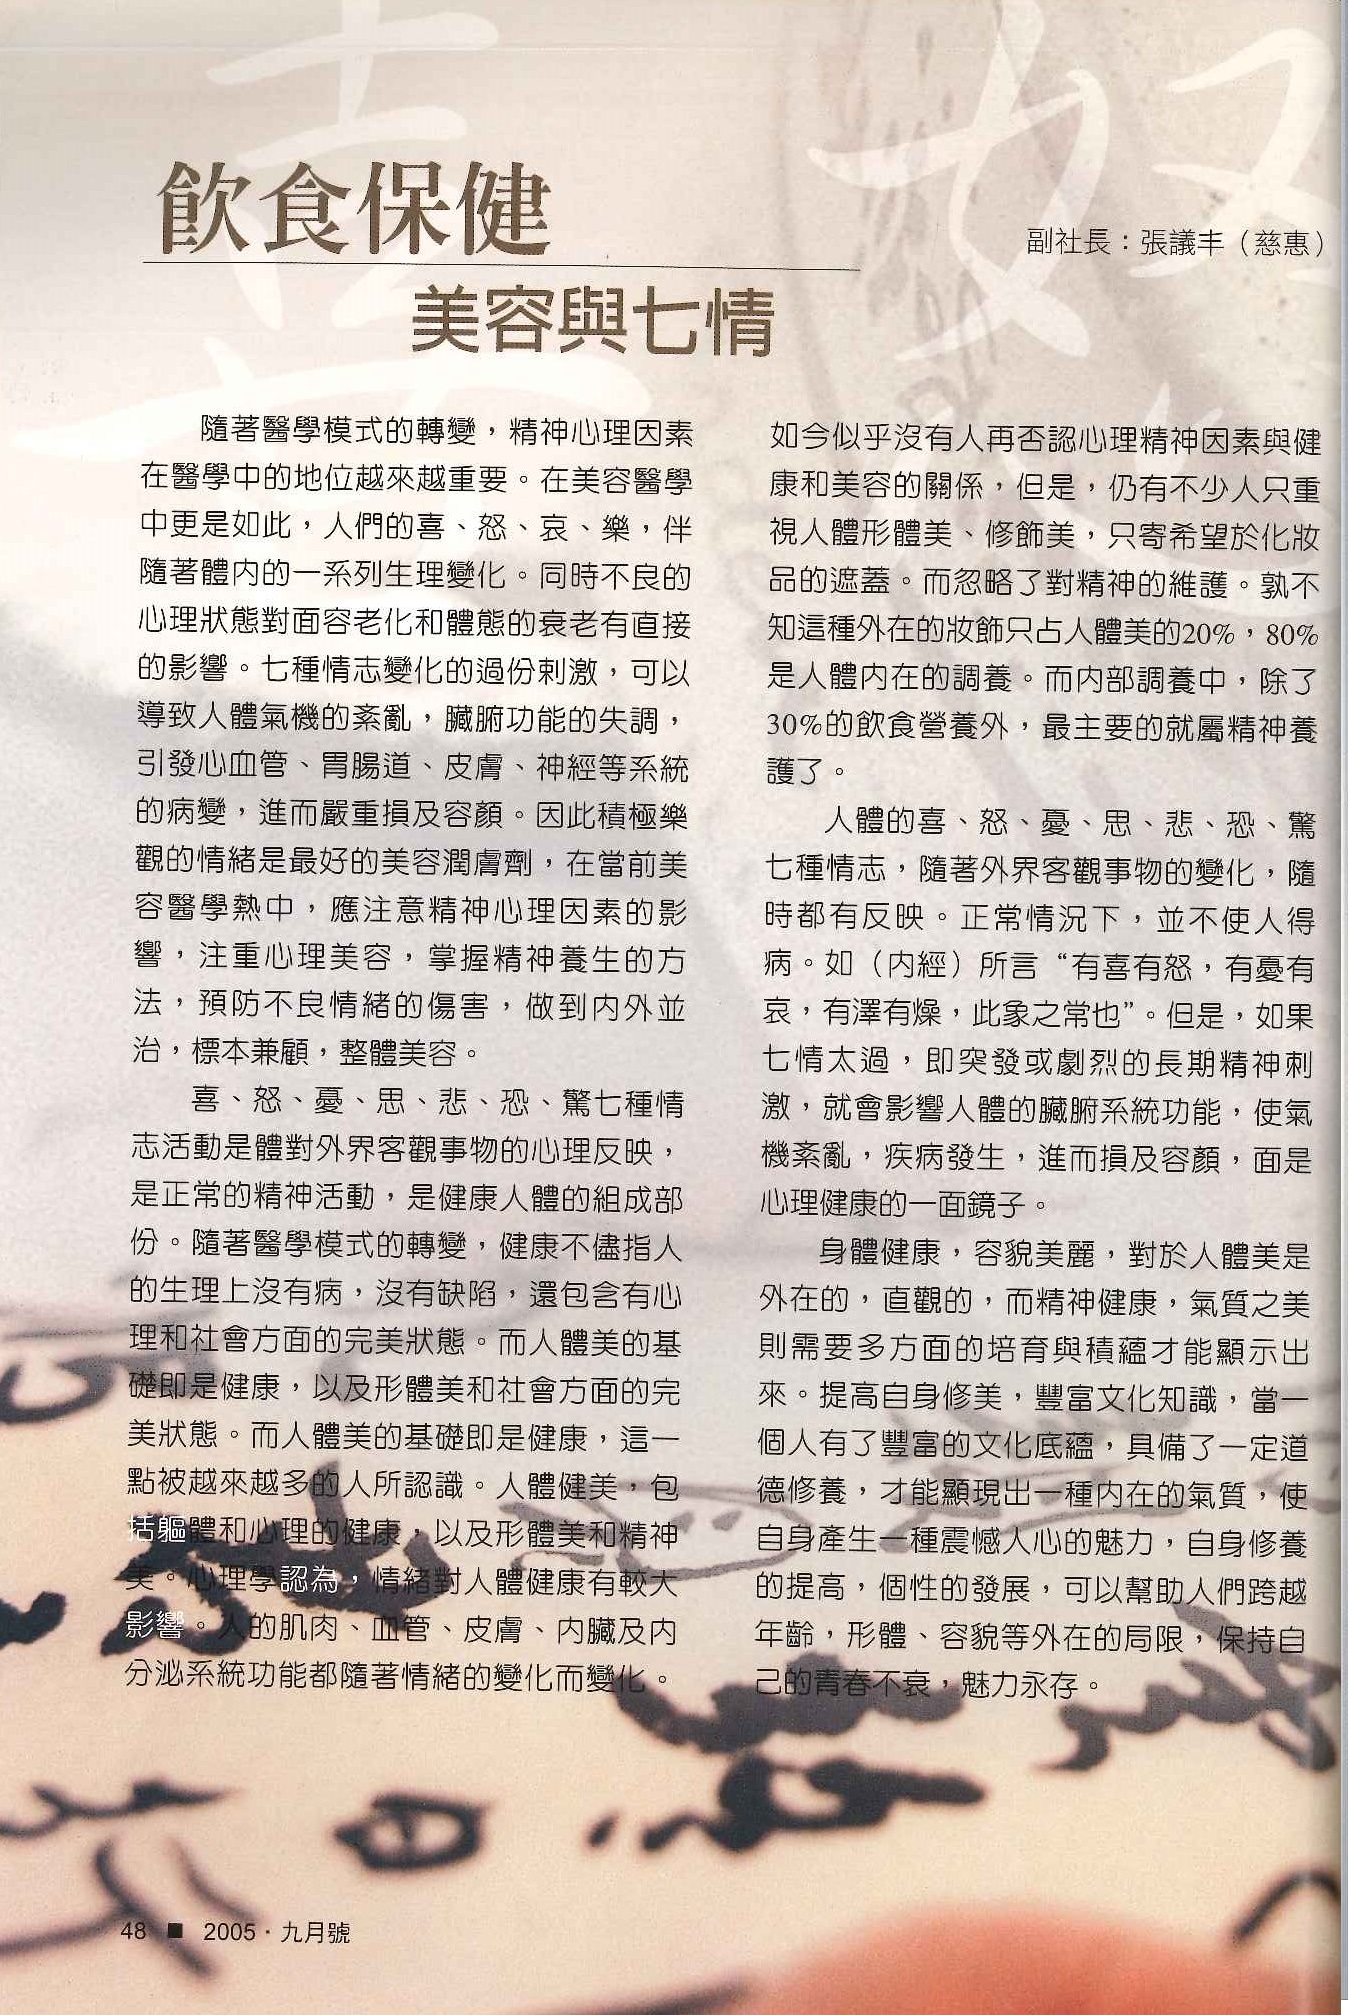 飲食保健
副社長：張議丰（慈惠）
美容與七情
隨著醫學模式的轉變，精神心理因素
在醫學中的地位越來越重要。在美容醫學
中更是如此，人們的喜、怒、哀、樂，伴
隨著體內的一系列生理變化。同時不良的
心理狀態對面容老化和體態的衰老有直接
的影響。七種情志變化的過份刺激，可以
導致人體氣機的紊亂，臟腑功能的失調，
引發心血管、胃腸道、皮膚、神經等系統
的病變，進而嚴重損及容顏。因此積極樂
觀的情緒是最好的美容潤膚劑，在當前美
容醫學熱中，應注意精神心理因素的影
響，注重心理美容，掌握精神養生的方
法，預防不良情緒的傷害，做到內外並
治，標本兼顧，整體美容。
喜、怒、憂、思、悲、恐、驚七種情
志活動是體對外界客觀事物的心理反映，
是正常的精神活動，是健康人體的組成部
份。隨著醫學模式的轉變，健康不儘指人
的生理上沒有病，沒有缺陷，還包含有心
理和社會方面的完美狀態。而人體美的基
礎即是健康，以及形體美和社會方面的完
美狀態。而人體美的基礎即是健康，這一
點被越來越多的人所認識。人體健美，包
括軀體和心理的健康，以及形體美和精神
美。心理學認為，情緒對人體健康有較大
影響。人的肌肉、血管、皮膚、內臟及內
分泌系統功能都隨著情緒的變化而變化。
如今似乎沒有人再否認心理精神因素與健
康和美容的關係，但是，仍有不少人只重
視人體形體美、修飾美，只寄希望於化妝
品的遮蓋。而忽略了對精神的維護。孰不
知這種外在的妝飾只占人體美的20%，80%
是人體內在的調養。而內部調養中，除了
30%的飲食營養外，最主要的就屬精神養
護了。
人體的喜、怒、憂、思、悲、恐、驚
七種情志，隨著外界客觀事物的變化，隨
時都有反映。正常情況下，並不使人得
病。如（內經）所言“有喜有怒，有憂有
哀，有澤有燥，此象之常也”。但是，如果
七情太過，即突發或劇烈的長期精神刺
激，就會影響人體的臟腑系統功能，使氣
機紊亂，疾病發生，進而損及容顏，面是
心理健康的一面鏡子。
身體健康，容貌美麗，對於人體美是
外在的，直觀的，而精神健康，氣質之美
則需要多方面的培育與積蘊才能顯示出
來。提高自身修美，豐富文化知識，當一
個人有了豐富的文化底蘊，具備了一定道
德修養，才能顯現出一種內在的氣質，使
自身產生一種震憾人心的魅力，自身修養
的提高，個性的發展，可以幫助人們跨越
年齡，形體、容貌等外在的局限，保持自
己的青春不衰，魅力永存。
48 ■ 2005·九月號